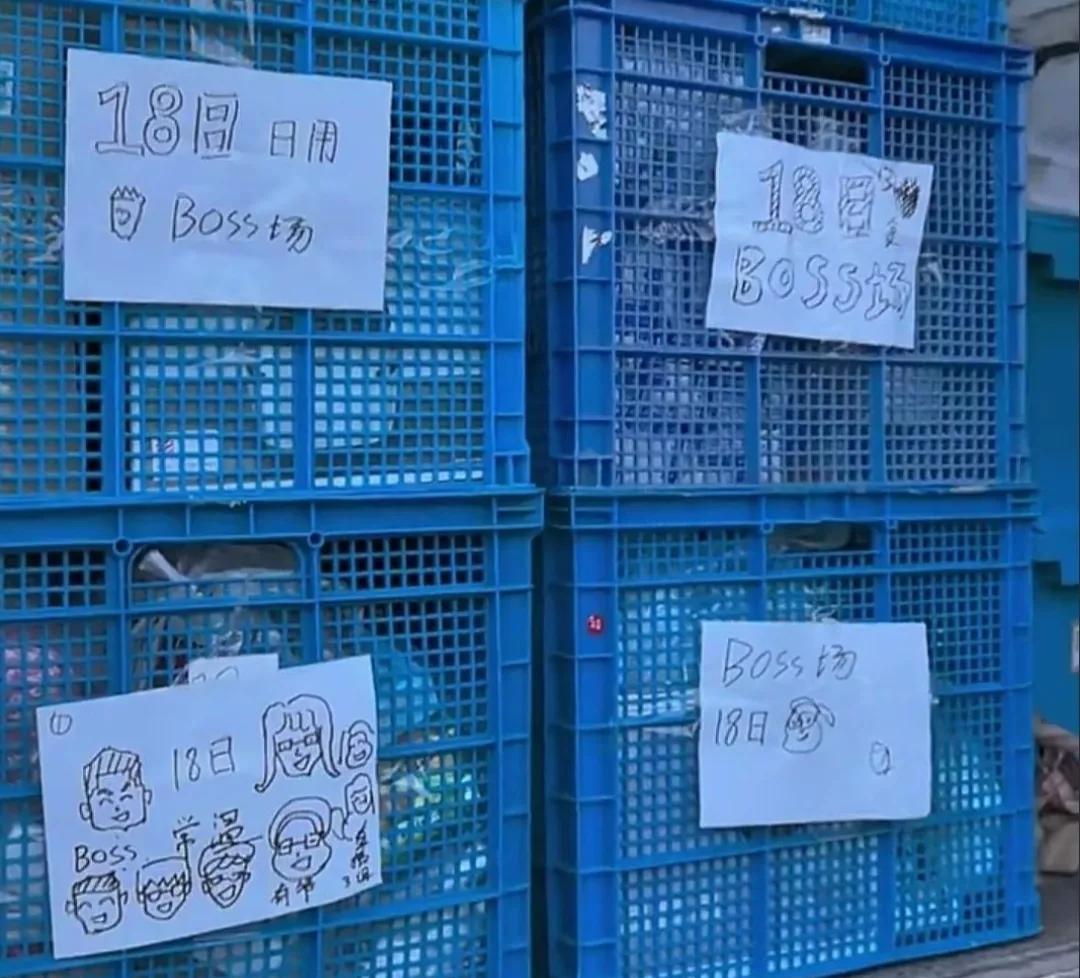 18日 日用
BOSS场
18日
BOSS场
①
18日
BOSS
常温
BOSS场
18日